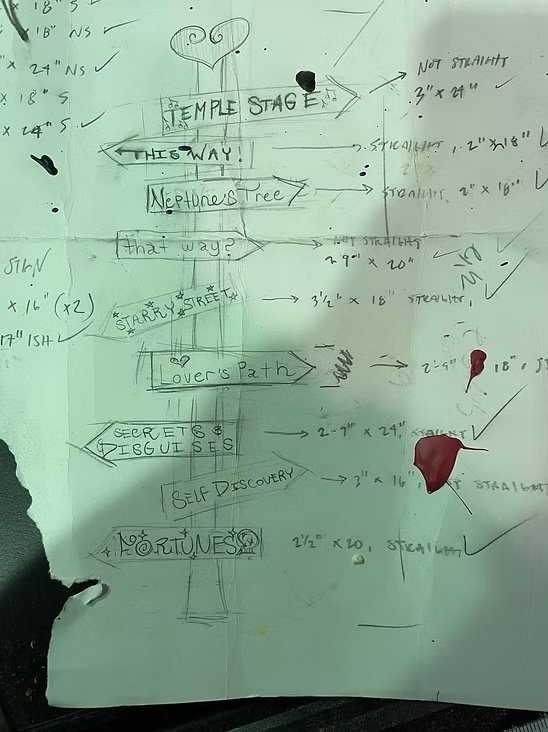 " x 18" S
x 18" NS ✓
" x 24" NS ✓
" x 18" S
" x 24" S ✓
TEMPLE STAGE
NOT STRAIGHT
3" x 24" ✓
THIS WAY!
STRAIGHT, 2" x 18" ✓
NEPTUNE'S TREE
STRAIGHT, 2" x 18" ✓
that way?
NOT STRAIGHT
2-9" x 20" ✓
SIGN
x 16" (x2)
17" ISH ✓
STARRY STREET
3 1/2" x 18" STRAIGHT, ✓
Lover's Path
18",
SECRETS &
DISGUISES
2-7" x 24", STRAIGHT ✓
SELF DISCOVERY
3" x 16", STRAIGHT
FORTUNES
2 1/2" x 20, STRAIGHT ✓